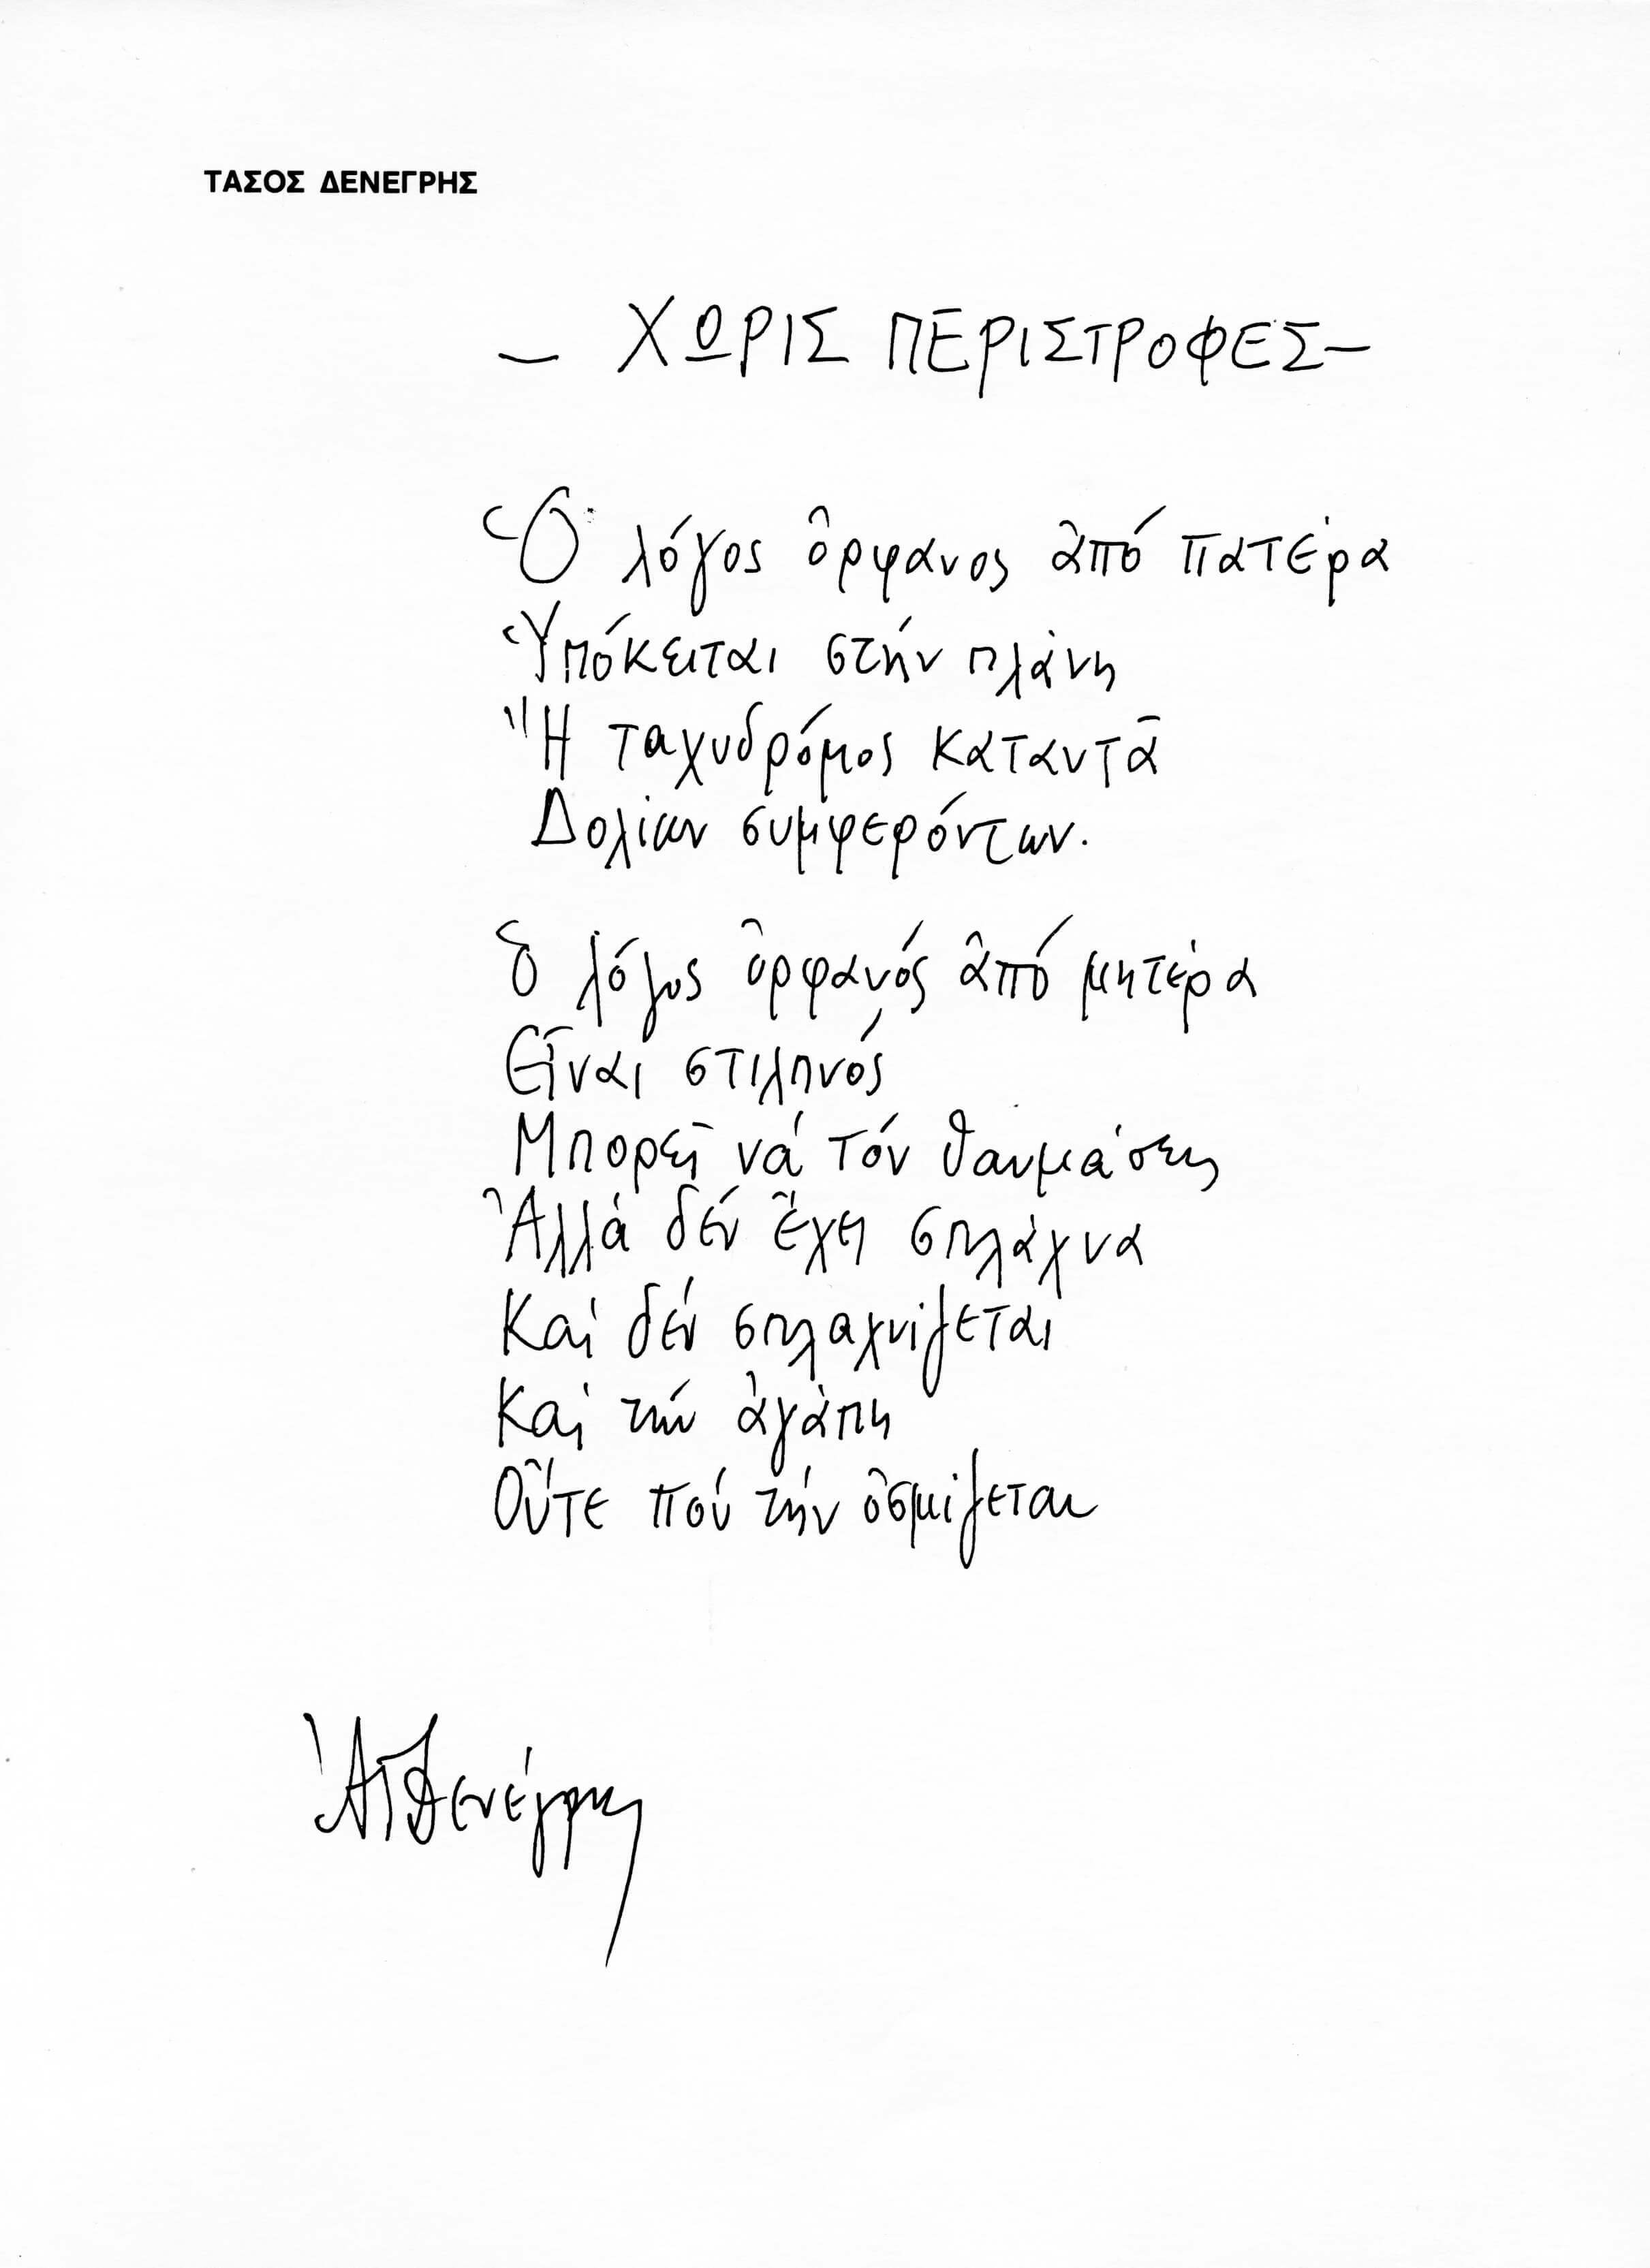 ΤΑΣΟΣ ΔΕΝΕΓΡΗΣ
— ΧΩΡΙΣ ΠΕΡΙΣΤΡΟΦΕΣ —
Ὁ λόγος ὀρφανος ἀπό πατέρα
Ὑπόκειται στήν πλάνη
Ἤ ταχυδρόμος καταντᾶ
Δολίων συμφερόντων.
Ὁ λόγος ὀρφανός ἀπό μητέρα
Εἶναι στιλπνός
Μπορεῖ νά τόν θαυμάσεις
Ἀλλά δέν ἔχει σπλάχνα
Καί δέν σπλαχνίζεται
Καί τήν ἀγάπη
Οὔτε πού τήν ὀσμίζεται
ἈΤΔενέγρης